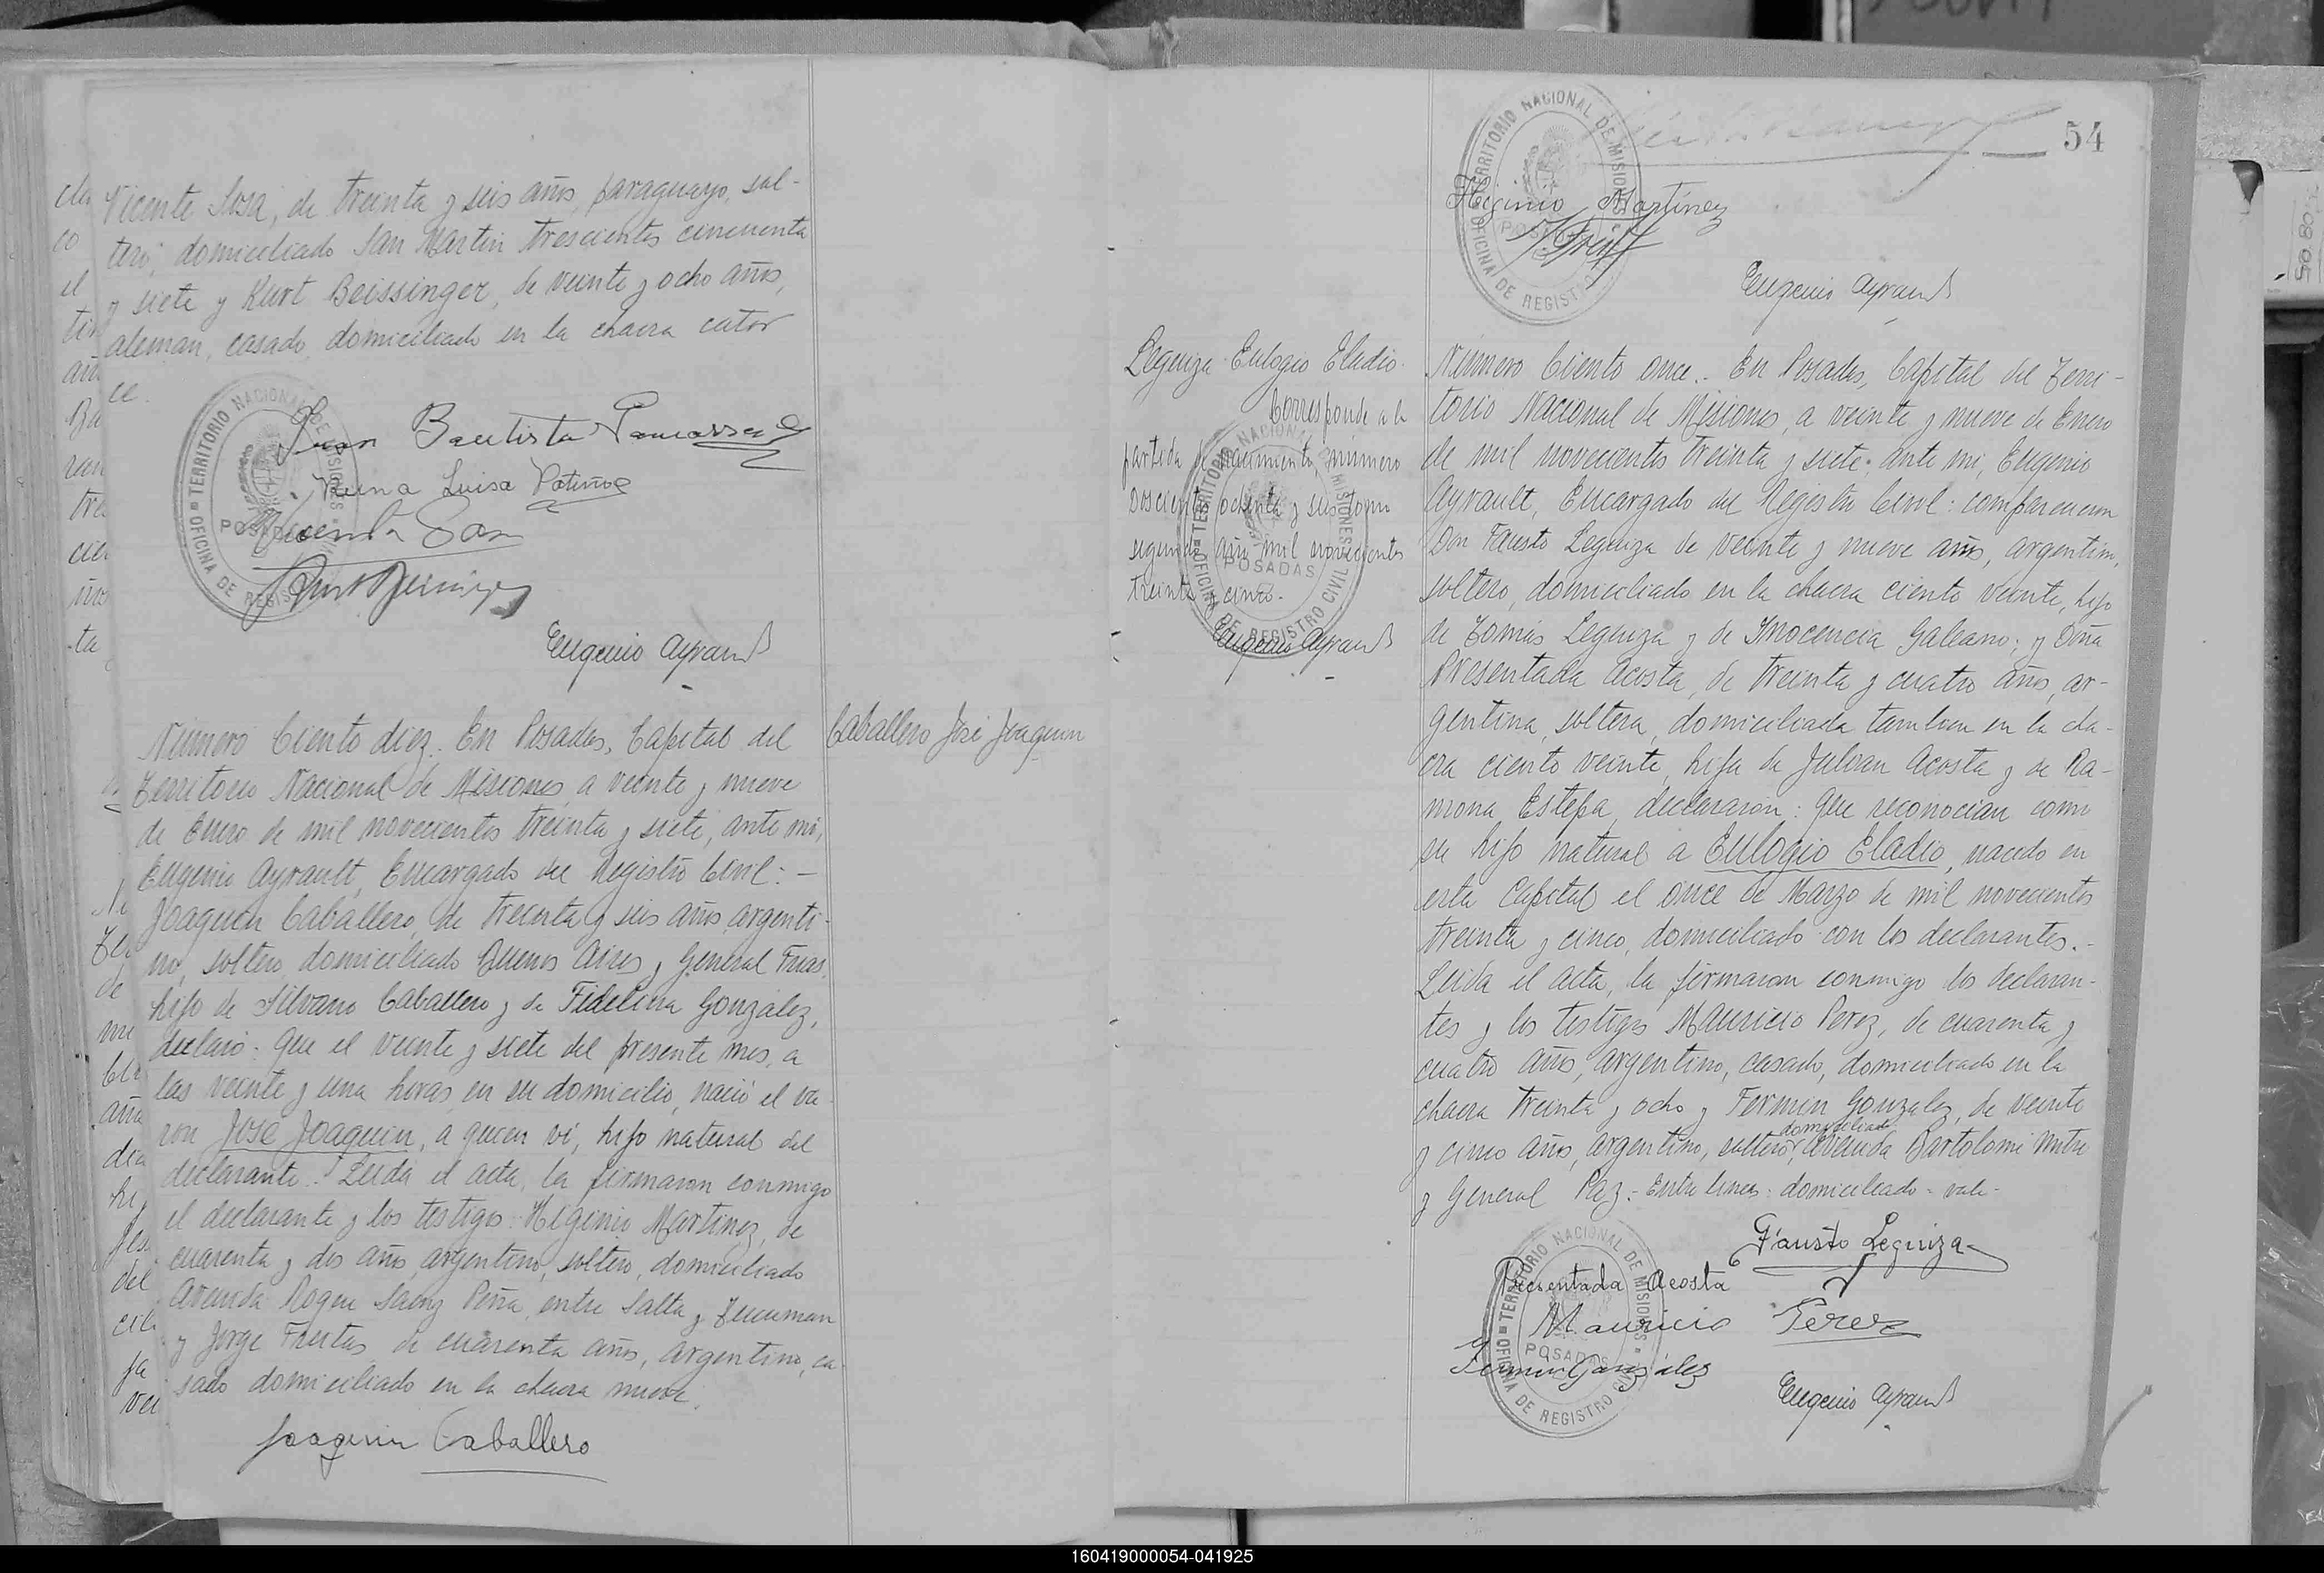 Vicente Sosa, de treinta y seis años, paraguayo, sol-
tero, domiciliado San Martin trescientos cincuenta
y siete y Kurt Beissinger, de veinte y ocho años,
aleman, casado, domiciliado en la chacra cator
ce.
Juan Bautista
Luisa Patiño
Eugenio Ayrault
Caballero José Joaquin
Número Ciento diez. En Posadas, Capital del
Territorio Nacional de Misiones, a veinte y nueve
de Enero de mil novecientos treinta y siete, ante mi,
Eugenio Ayrault, Encargado del Registro Civil: -
Joaquin Caballero, de treinta y seis años, argenti-
no, soltero, domiciliado Buenos Aires y General Frias,
hijo de Silvano Caballero y de Fidelina González,
declaró: Que el veinte y siete del presente mes, a
las veinte y una horas, en su domicilio, nació el va-
ron José Joaquin, a quien vi, hijo natural del
declarante. Leida el acta, la firmaron conmigo
el declarante y los testigos: Higinio Martinez, de
cuarenta y dos años, argentino, soltero, domiciliado
Avenida Roque Saenz Peña, entre Salta y Tucuman
y Jorge Freitas de cuarenta años, argentino, ca-
sado domiciliado en la chacra nueve.
Joaquin Caballero
54
Higinio Martinez
Eugenio Ayrault
OFICINA DE REGISTRO CIVIL
TERRITORIO NACIONAL DE MISIONES
POSADAS
Leguiza Eulogio Eladio.
Corresponde a la
partida de nacimiento número
Doscientos ochenta y seis tomo
segundo año mil novecientos
treinta y cinco.-
Eugenio Ayrault
Número Ciento once.- En Posadas, Capital del Terri-
torio Nacional de Misiones, a veinte y nueve de Enero
de mil novecientos treinta y siete, ante mi, Eugenio
Ayrault, Encargado del Registro Civil: comparecieron
Don Fausto Leguiza de veinte y nueve años, argentino,
soltero, domiciliado en la chacra ciento veinte, hijo
de Tomás Leguiza y de Inocencia Galeano; y Doña
Presentada Acosta, de treinta y cuatro años, ar-
gentina, soltera, domiciliada tambien en la cha-
cra ciento veinte, hija de Julian Acosta y de Ra-
mona Estepa, declararon: Que reconocian como
su hijo natural a Eulogio Eladio, nacido en
esta Capital el once de Marzo de mil novecientos
treinta y cinco, domiciliado con los declarantes.-
Leida el acta, la firmaron conmigo los declaran-
tes y los testigos Mauricio Perez, de cuarenta y
cuatro años, argentino, casado, domiciliado en la
chacra treinta y ocho y Fermin Gonzalez, de veinte
domiciliado
y cinco años, argentino, soltero, Avenida Bartolomé Mitre
y General Paz.- Entre lineas: domiciliado - vale.-
Fausto Leguiza
Presentada Acosta
Mauricio Perez
Fermin González
Eugenio Ayrault
160419000054-041925